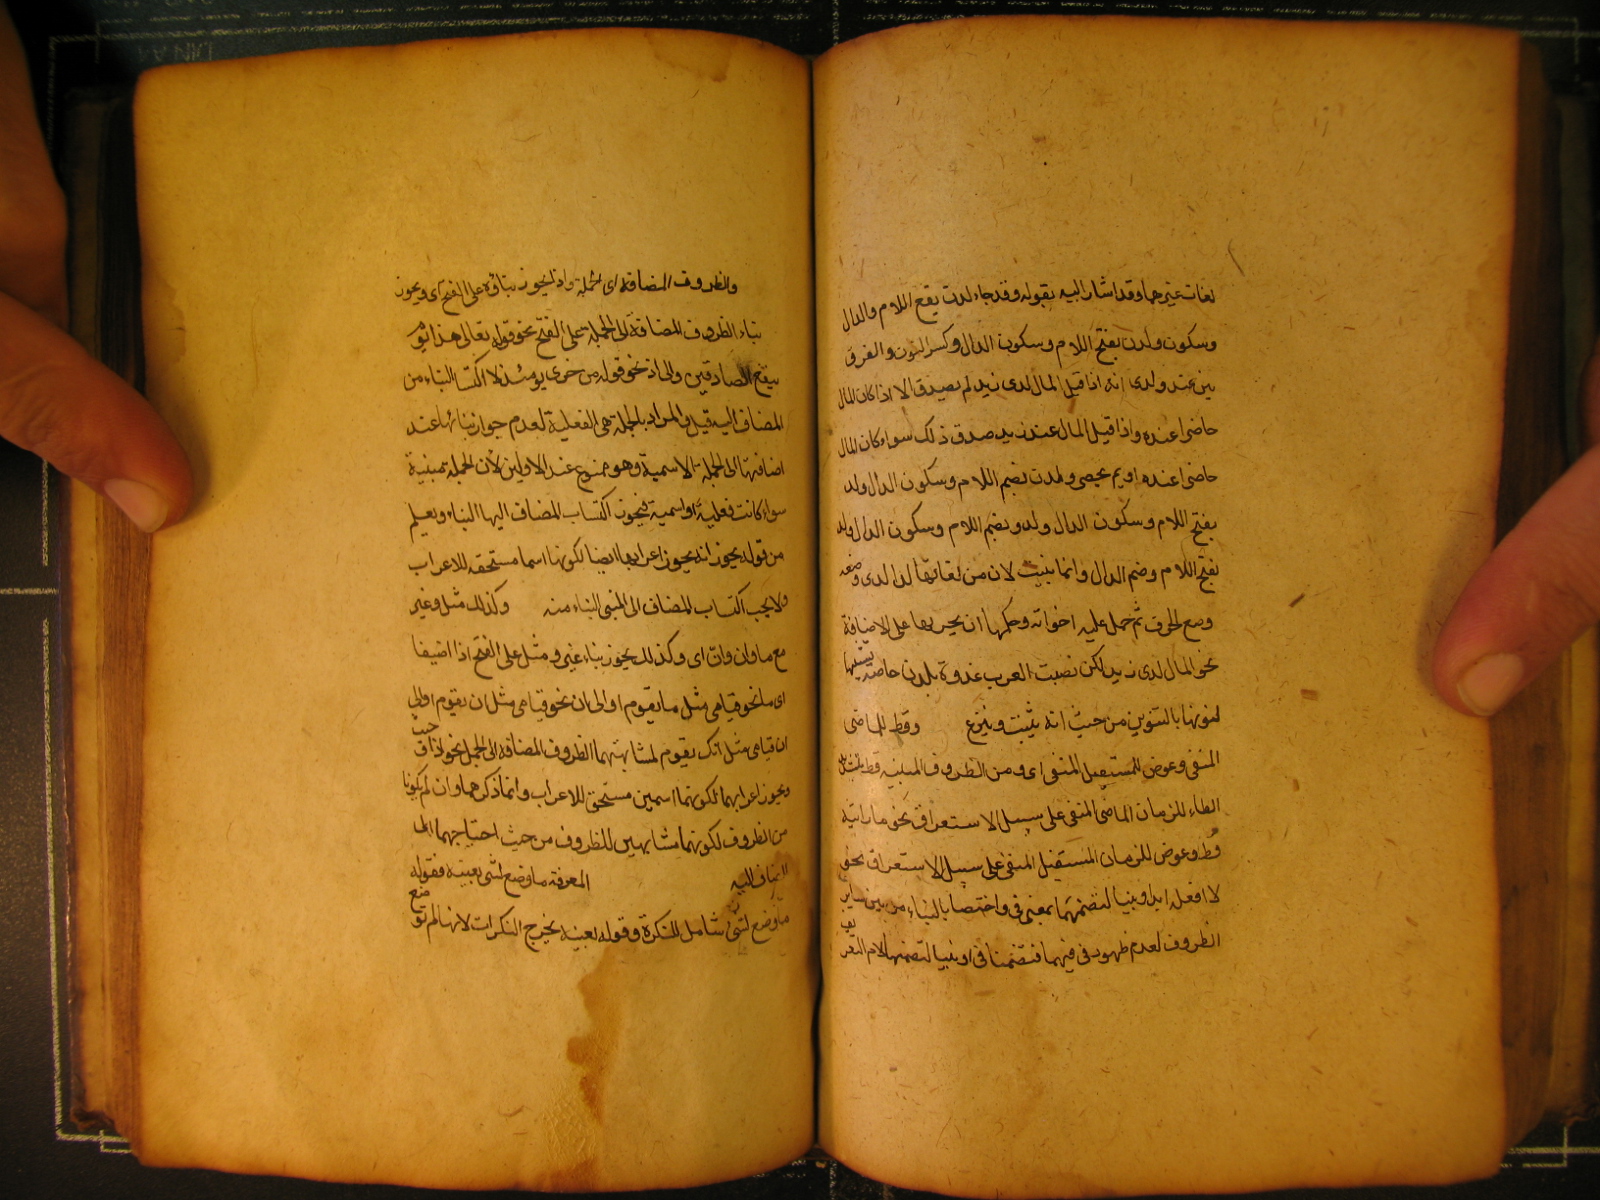 لغات غيرهما وقد اشار اليه بقوله وقد جاء لدن بفتح اللام والدال
وسكون ولدن بفتح اللام وسكون الدال وكسر النون والفرق
بين عند ولدى انه اذا قيل المال لدى زيد لم يصدق الا اذا كان المال
حاضرا عنده واذا قيل المال عند زيد صدق ذلك سواء كان المال
حاضرا عنده او لم يحضر ولدن بضم اللام وسكون الدال ولد
بفتح اللام وسكون الدال ولد وبضم اللام وسكون الدال ولد
بفتح اللام وضم الدال وانما بنيت لان من لغاتها لد ولدى وضعه
وضع الحرف ثم حمل عليه اخواته وحكمها ان يجر بها على الاضافة
نحو المال لدى زيد لكن نصبت العرب غدوة بلدن خاصة تشبيها
لنونها بالتنوين من حيث انه يثبت وينزع وقط للماضى
المنفى وعوض للمستقبل المنفى اى ومن الظروف المبنيه قط
الطاء للزمان الماضى المنفى على سبيل الاستغراق نحو ما رايته
قط وعوض للزمان المستقبل المنفى على سبيل الاستغراق نحو
لا افعله ابدا وبنيا لتضمنهما بمعنى فى واختصا بالبناء من بين ساير
الظروف لعدم ظهور فى فيهما فتضمنا فى او بنيا لتضمنهما لام التعريف
والظروف المضافة الى الجملة واذ يجوز بناؤه على الفتح اى ويجوز
بناء الظروف المضافة الى الجملة على الفتح نحو قوله تعالى هذا يوم
ينفع الصادقين والى اذ نحو قوله من خزى يومئذ لاكتساب البناء من
المضاف اليه قيل والمراد بالجملة هى الفعلية لعدم جواز بنائها عند
اضافتها الى الجملة الاسمية وهو ممنوع عند الاولين لان الجملة مبنية
سواء كانت فعلية او اسمية فيجوز اكتساب المضاف اليها البناء ويعلم
من قوله يجوز انه يجوز اعرابها ايضا لكونها اسما مستحقه للاعراب
ولا يجب اكتساب المضاف الى المبنى البناء منه وكذلك مثل وغير
مع ما وان وانّ اى وكذلك يجوز بناء غير ومثل على الفتح اذا اضيفا
اى ما نحو قيامى مثل ما يقوم او الى ان نحو قيامى مثل ان يقوم او الى
ان قيامى مثل انك يقوم لمشابهتهما الظروف المضافة الى الجمل نحو اذ او حيث
ويجوز اعرابهما لكونهما اسمين مستحق للاعراب وانما ذكرهما وان لم يكونا
من الظروف لكونهما مشابهين للظروف من حيث احتياجهما الى
المضاف اليه المعرفة ما وضع لشئ بعينه فقوله
ما وضع لشئ شامل للنكرة وقوله بعينه يخرج النكرات لانها لم توضع